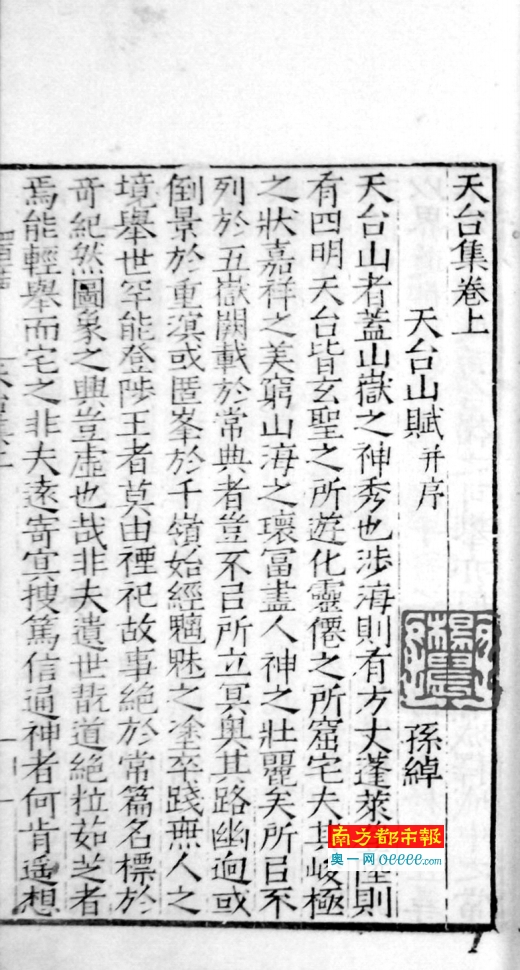 天台集卷上
天台山賦并序
孫綽
天台山者蓋山嶽之神秀也涉海則有方丈蓬萊陸則
有四明天台皆玄聖之所遊化靈僊之所窟宅夫其峻極
之狀嘉祥之美窮山海之瓌冨盡人神之壯麗矣所㠯不
列於五嶽闕載於常典者豈不㠯所立冥奧其路幽逈或
倒景於重溟或匿峯於千嶺始經魑魅之塗卒踐無人之
境舉世罕能登陟王者莫由禋祀故事絶於常篇名標於
奇紀然圖象之興豈虛也哉非夫遺世翫道絶粒茹芝者
焉能輕舉而宅之非夫遠寄冥搜篤信通神者何肯遥想
南方都市報
奧一网 oeeee.com
1